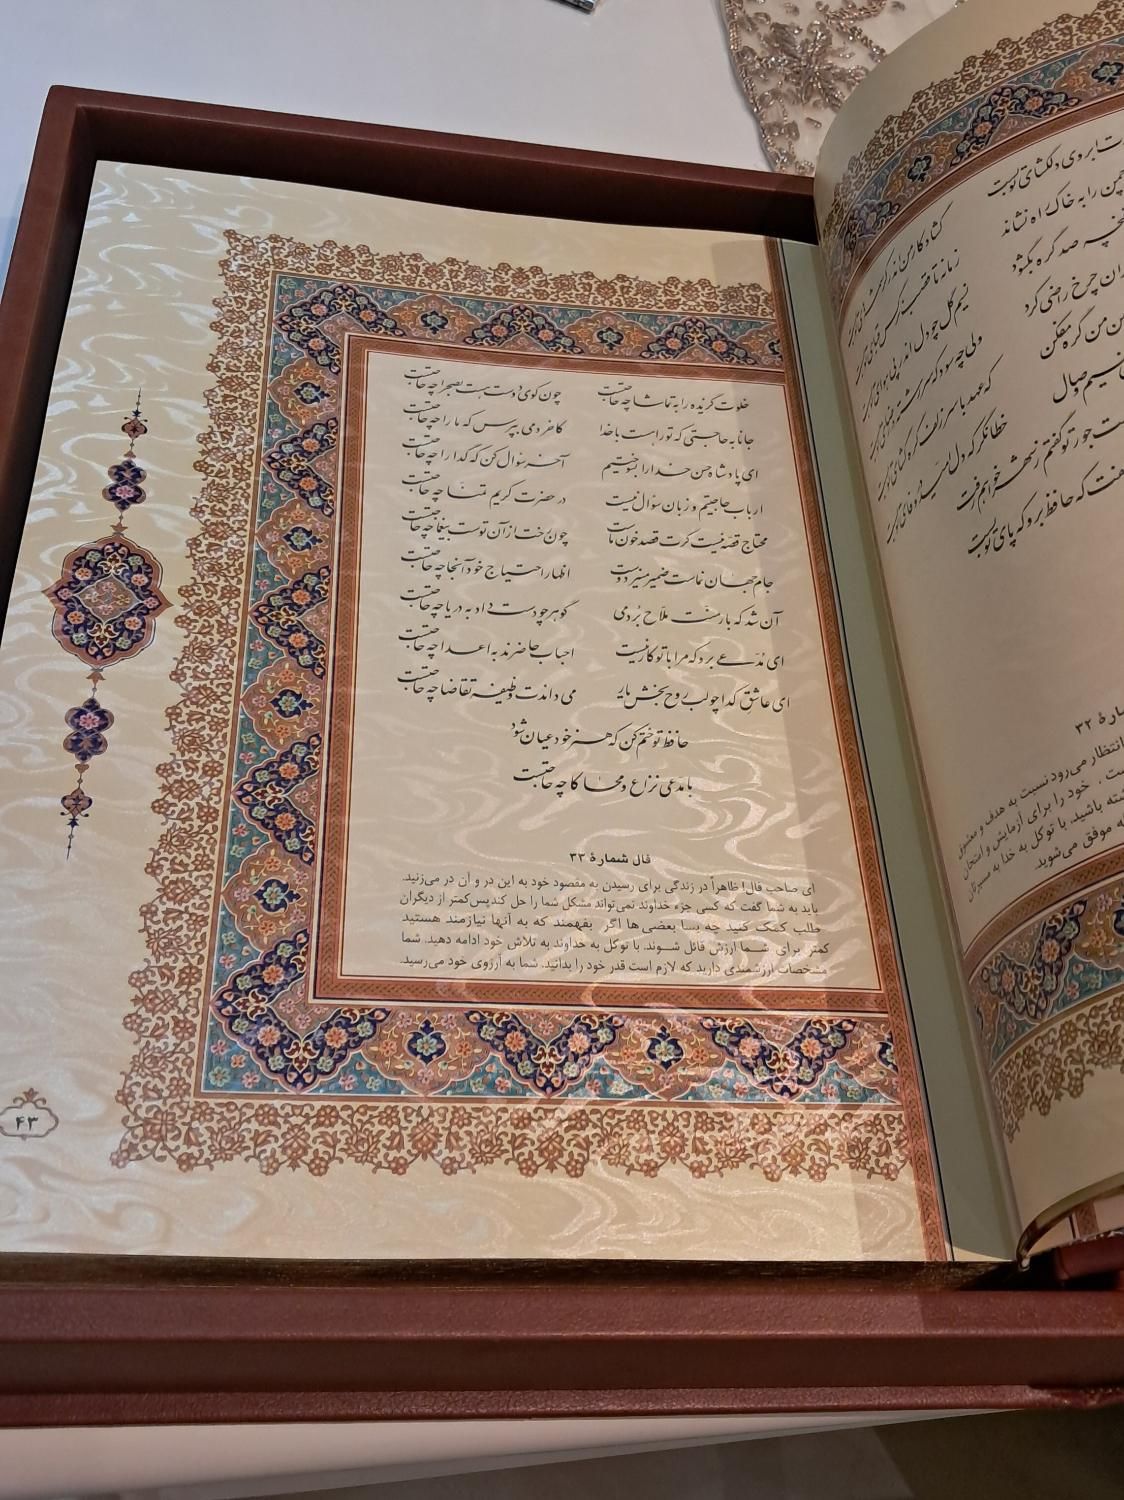 خلوت گزیده را به تماشا چه حاجتست چون کوی دوست هست بصحرا چه حاجتست
جانا به حاجتی که تو را هست با خدا کاخر دمی بپرس که ما را چه حاجتست
ای پادشاه حسن خدا را بسوختیم آخر سؤال کن که گدا را چه حاجتست
ارباب حاجتیم و زبان سؤال نیست در حضرت کریم تمنّا چه حاجتست
محتاج قصه نیست گرت قصد خون ماست چون رخت از آن توست بیغما چه حاجتست
جام جهان نماست ضمیر منیر دوست اظهار احتیاج خود آنجا چه حاجتست
آن شد که بار منّت ملاّح بُردمی گوهر چو دست داد به دریا چه حاجتست
ای مُدّعی برو که مرا با تو کار نیست احباب حاضرند به اعدا چه حاجتست
ای عاشقِ گدا چو لب روح بخش یار می داندت وظیفه تقاضا چه حاجتست
حافظ تو ختم کن که هنر خود عیان شود
با مدعی نزاع و محاکا چه حاجتست
فال شمارهٔ ۳۳
ای صاحب فال! ظاهراً در زندگی برای رسیدن به مقصود خود به این در و آن در می‌زنید.
باید به شما گفت که کسی جزء خداوند نمی‌تواند مشکل شما را حل کند پس کمتر از دیگران
طلب کمک کنید چه بسا بعضی ها اگر بفهمند که به آنها نیازمند هستید
کمتر برای شما ارزش قائل شوند. با توکل به خداوند به تلاش خود ادامه دهید. شما
مشخصات ارزشمندی دارید که لازم است قدر خود را بدانید. شما به آرزوی خود می‌رسید.
۴۳
ابروی دلگشای تو بست
را به خاک راه نشاند
صد گره بگشود
چرخ راضی کرد
من گره مفکن
نسیم وصال
جور تو گفتم ز شهر خواهم رفت
که حافظ برو که پای تو بست
۳۲
انتظار می‌رود نسبت به هدف و معشوق
خود را برای آزمایش و امتحان
باشید. با توکل به خدا به مسیرتان
موفق می‌شوید.